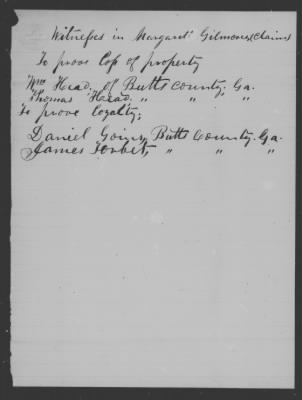 Witnesses in Margaret Gilmores (claim)
To proove Loss of property
Wm Head, of Butts county, Ga.
Thomas Head. " " "
To prove loyalty;
Daniel Going, Butts County. Ga.
James Torbet, " " "